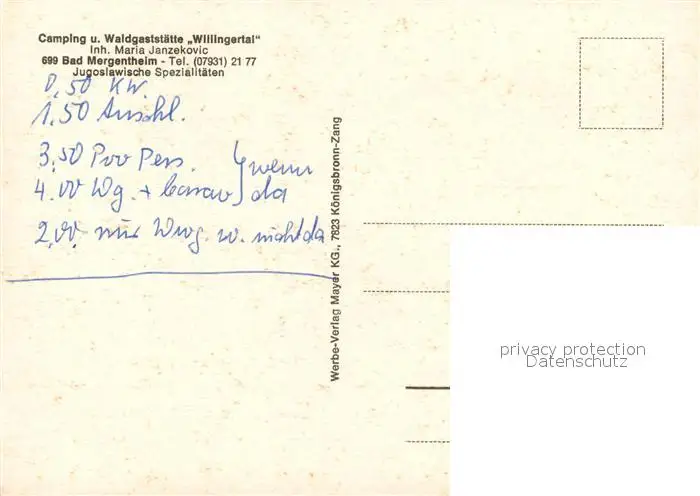 Camping u. Waldgaststätte „Willingertal"
Inh. Maria Janzekovic
699 Bad Mergentheim - Tel. (07931) 21 77
Jugoslawische Spezialitäten
0,50 KW.
1,50 Anschl.
3,50 Pro Pers. } wenn
4.00 Wg. + Carav da
2,00 nur Wwg. w. nicht da
Werbe-Verlag Mayer KG., 7823 Königsbronn-Zang
privacy protection
Datenschutz